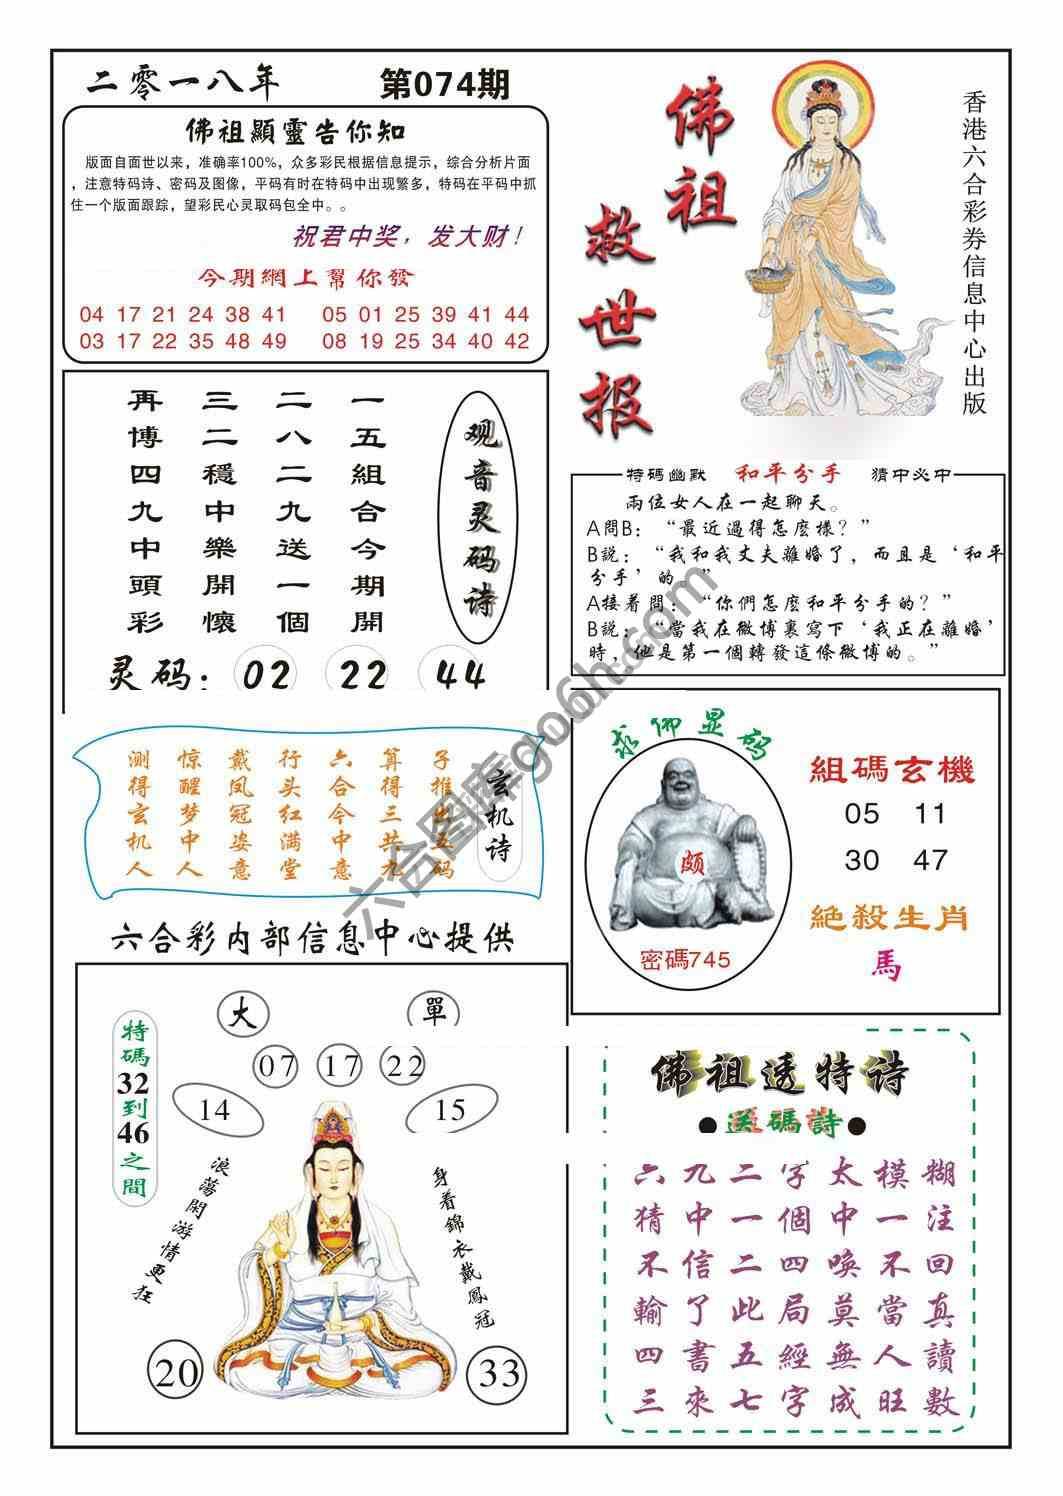 二零一八年
第074期
佛祖顯靈告你知
版面自面世以来，准确率100%，众多彩民根据信息提示，综合分析片面
，注意特码诗、密码及图像，平码有时在特码中出现繁多，特码在平码中抓
住一个版面跟踪，望彩民心灵取码包全中。。
祝君中奖，发大财！
今期網上幫你發
04 17 21 24 38 41
05 01 25 39 41 44
03 17 22 35 48 49
08 19 25 34 40 42
佛祖救世报
香港六合彩券信息中心出版
观音灵码诗
一五組合今期開
二八二九送一個
三二穩中樂開懷
再博四九中頭彩
灵码：02 22 44
特碼幽默 和平分手 猜中必中
兩位女人在一起聊天。
A問B：“最近過得怎麽樣？”
B説：“我和我丈夫離婚了，而且是‘和平
分手’的。”
A接着問：“你們怎麽和平分手的？”
B説：“當我在微博裏寫下‘我正在離婚’
時，他是第一個轉發這條微博的。”
玄机诗
子推出五码
算得三共九
六合今中意
行头红满堂
戴凤冠姿意
惊醒梦中人
测得玄机人
求佛显码
颇
密碼745
組碼玄機
05 11
30 47
絶殺生肖
馬
六合彩内部信息中心提供
大
單
07 17 22
14
15
特碼32到46之間
浪蕩閑游情更狂
身着錦衣戴鳳冠
20
33
佛祖透特诗
●送碼詩●
六九二字太模糊
猜中一個中一注
不信二四唤不回
輸了此局莫當真
四書五經無人讀
三來七字成旺數
六合图库go6h.com